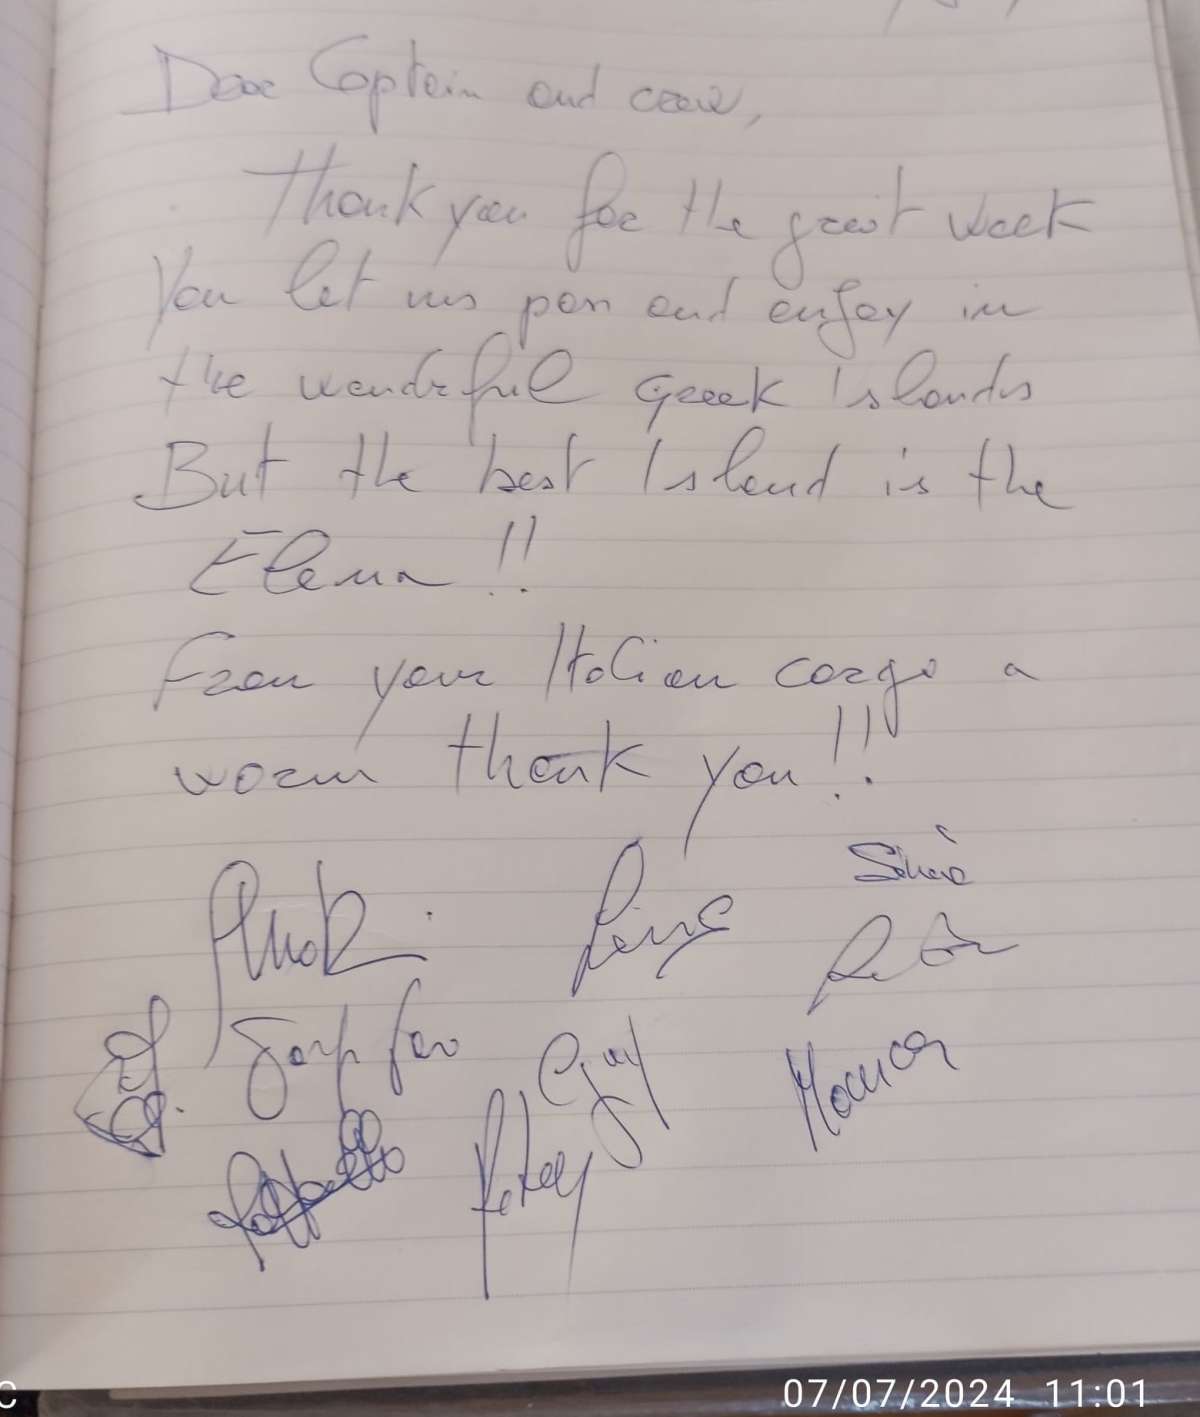 Dear Captein and crew,
Thank you for the great week
You let us pass and enjoy in
the wonderful Greek Islands
But the best Island is the
Elena !!
From your Italian cargo a
warm thank you !!
Raffaello
Monica
07/07/2024 11:01